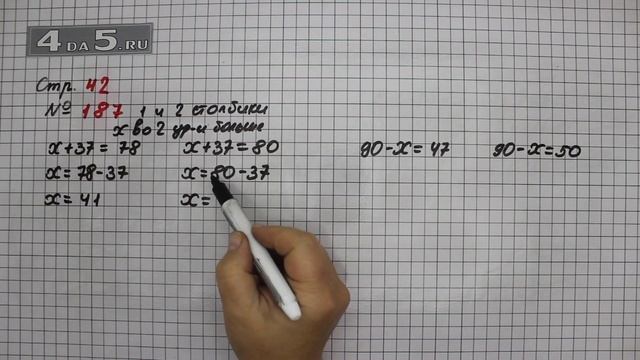 4 DA 5.RU
Стр. 42
№ 187 1 и 2 столбики
x во 2 ур-и больше
x+37=78 x+37=80 90-x=47 90-x=50
x=78-37 x=80-37
x=41 x=